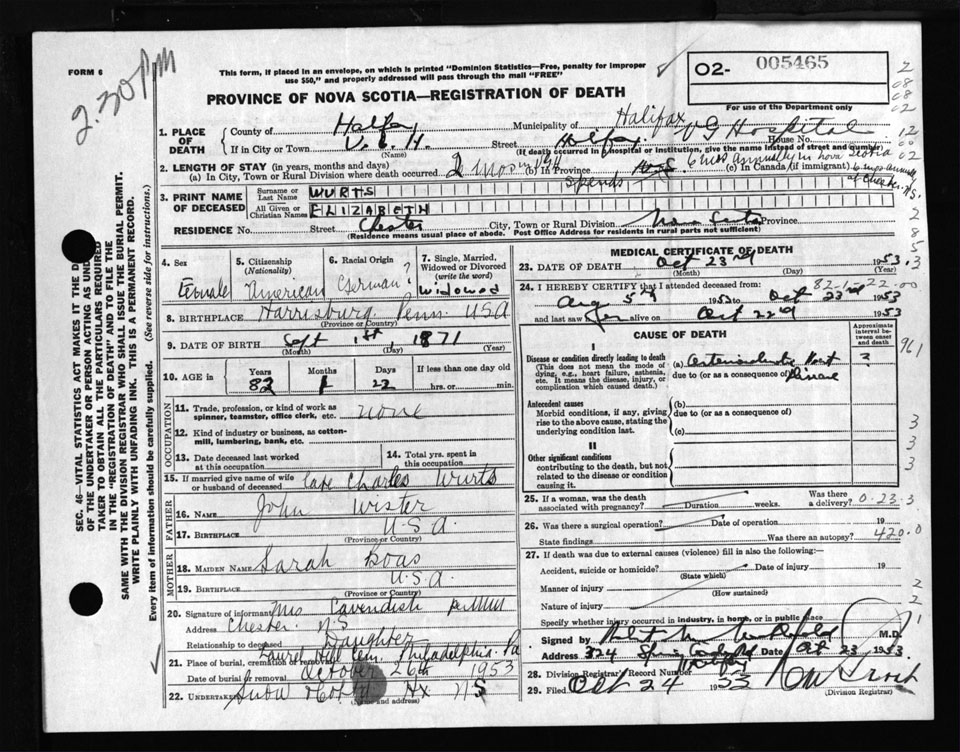 2.30 PM
FORM 6
This form, if placed in an envelope, on which is printed "Dominion Statistics—Free, penalty for improper
use $50," and properly addressed will pass through the mail "FREE"
PROVINCE OF NOVA SCOTIA—REGISTRATION OF DEATH
02- 005465
For use of the Department only
1. PLACE OF DEATH
County of Halifax Municipality of Halifax
If in City or Town V.G.H. Street Halifax House No. VG Hospital
(Name) (If death occurred in a hospital or institution, give the name instead of street and number)
2. LENGTH OF STAY (in years, months and days)
(a) In City, Town or Rural Division where death occurred 2 mos (b) In Province spends 6 mos annually in Nova Scotia (c) In Canada (if immigrant) 6 mos annually at Chester N.S.
3. PRINT NAME OF DECEASED
Surname or Last Name WURTS
All Given or Christian Names ELIZABETH
RESIDENCE No. Street Chester City, Town or Rural Division Nova Scotia Province
(Residence means usual place of abode. Post Office Address for residents in rural parts not sufficient)
4. Sex Female
5. Citizenship (Nationality) American
6. Racial Origin German?
7. Single, Married, Widowed or Divorced (write the word) Widowed
8. BIRTHPLACE Harrisburg Penn. U.S.A
(Province or Country)
9. DATE OF BIRTH Sept 1st, 1871
(Month) (Day) (Year)
10. AGE in Years 82 Months 1 Days 22 If less than one day hrs. or min.
OCCUPATION
11. Trade, profession, or kind of work as spinner, teamster, office clerk, etc. none
12. Kind of industry or business, as cotton-mill, lumbering, bank, etc.
13. Date deceased last worked at this occupation
14. Total yrs. spent in this occupation
15. If married give name of wife or husband of deceased Late Charles Wurts
FATHER
16. NAME John Wister
17. BIRTHPLACE U.S.A.
(Province or Country)
MOTHER
18. MAIDEN NAME Sarah Boas
19. BIRTHPLACE U.S.A.
(Province or Country)
20. Signature of informant Mrs Cavendish
Address Chester N.S
Relationship to deceased Daughter
21. Place of burial, cremation or removal Laurel Hill Cem. Philadelphia. Pa
Date of burial or removal October 26th 1953
22. UNDERTAKER Hx NS
(Name and address)
MEDICAL CERTIFICATE OF DEATH
23. DATE OF DEATH Oct 23rd 1953
(Month) (Day) (Year)
24. I HEREBY CERTIFY that I attended deceased from
Aug 5th 1953 to Oct 23rd 1953
and last saw her alive on Oct 22nd 1953
82-1-22-00
CAUSE OF DEATH
Approximate interval between onset and death
I
Disease or condition directly leading to death
(This does not mean the mode of dying, e.g., heart failure, asthenia, etc. It means the disease, injury, or complication which caused death.)
(a) Arteriosclerotic Heart Disease ?
due to (or as a consequence of)
Antecedent causes
Morbid conditions, if any, giving rise to the above cause, stating the underlying condition last.
(b)
due to (or as a consequence of)
(c)
II
Other significant conditions
contributing to the death, but not related to the disease or condition causing it.
25. If a woman, was the death associated with pregnancy? Duration weeks. Was there a delivery?
0-23-3
26. Was there a surgical operation? Date of operation 19
State findings Was there an autopsy?
420.0
27. If death was due to external causes (violence) fill in also the following:—
Accident, suicide or homicide? Date of injury 19
(State which)
Manner of injury
(How sustained)
Nature of injury
Specify whether injury occurred in industry, in home, or in public place
Signed by M.D.
Address 324 Spring Garden Rd Date Oct 23 1953.
Halifax
28. Division Registrar's Record Number
29. Filed Oct 24 1953
(Division Registrar)
SEC. 46—VITAL STATISTICS ACT MAKES IT THE D
OF THE UNDERTAKER OR PERSON ACTING AS UNDER
TAKER TO OBTAIN ALL THE PARTICULARS REQUIRED
IN THE "REGISTRATION OF DEATH" AND TO FILE THE
SAME WITH THE DIVISION REGISTRAR WHO SHALL ISSUE THE BURIAL PERMIT.
WRITE PLAINLY WITH UNFADING INK. THIS IS A PERMANENT RECORD.
Every item of information should be carefully supplied. (See reverse side for instructions.)